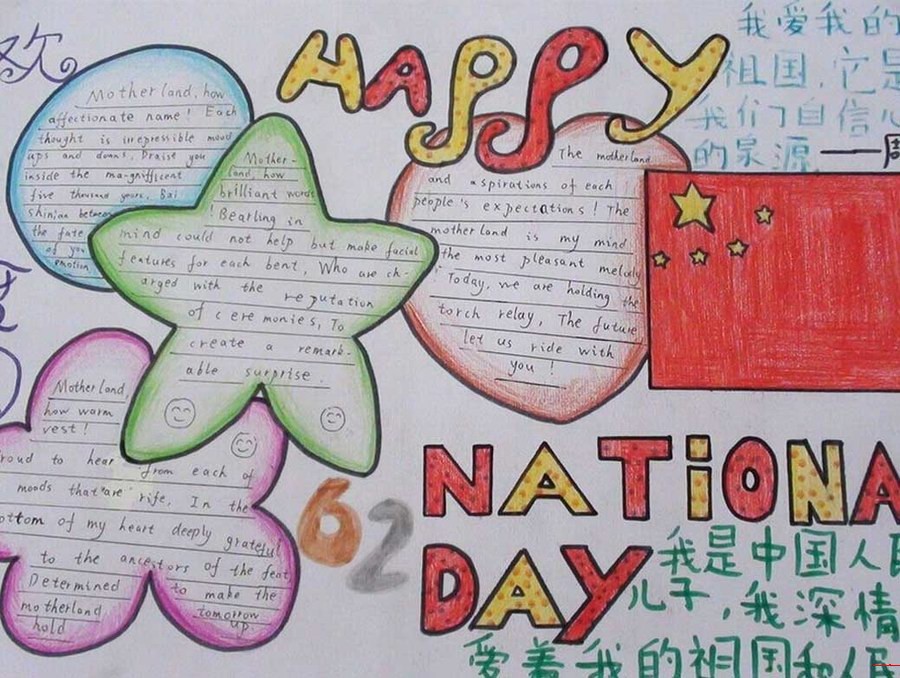 欢
HAPPY
我爱我的
祖国,它是
我们自信心
的泉源——周
Mother land, how
affectionate name! Each
thought is irrepressible mood
ups and downs. Praise you
inside the ma-gnifficent
five thousand years, Bai
shinian between
the fate
of you
emotion
Mother-
land, how
brilliant words
Bearling in
mind could not help but make facial
features for each bent, Who are ch-
arged with the reputation
of ceremonies, To
create a remark-
able surprise.
The motherland
and aspirations of each
people's expectations! The
mother land is my mind
the most pleasant melody
Today, we are holding the
torch relay, The future
let us ride with
you!
度
Mother land,
how warm
vest!
roud to hear from each of
moods that are rife, In the
ottom of my heart deeply grateful
to the ancestors of the feat
Determined to make the
motherland tomorrow
hold up
62
NATIONA
DAY
我是中国人民
儿子,我深情
爱着我的祖国和人民